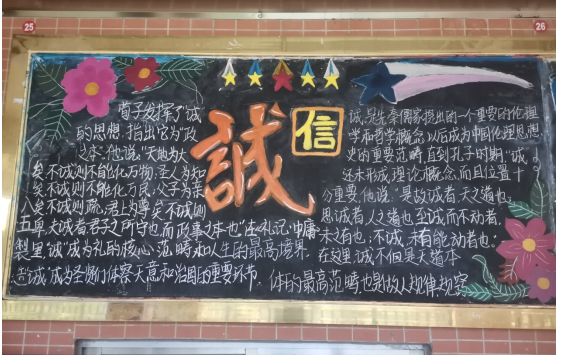 25
26
誠
信
荀子发挥了“诚”
的思想,指出它为“政
之本”.他说:“天地为大
矣,不诚则不能化万物;圣人为知
矣,不诚则不能化万民;父子为亲
矣,不诚则疏;君上为尊矣,不诚则
卑.夫诚者,君子之所守也,而政事之本也”.在《礼记·中庸》
里,“诚”成为礼的核心范畴和人生的最高境界.
诚,成为圣贤们体察天意和治国的重要环节.
五
製
诚,是先秦儒家提出的一个重要的伦理
学和哲学概念,以后成为中国伦理思想
史的重要范畴.直到孔子时期,“诚”
还未形成理论概念,而且位置十
分重要.他说:“是故诚者,天之道也;
思诚者,人之道也.至诚而不动者,
未之有也;不诚,未有能动者也.”
在这里,诚不但是天道本
体的最高范畴,也是做人规律,规